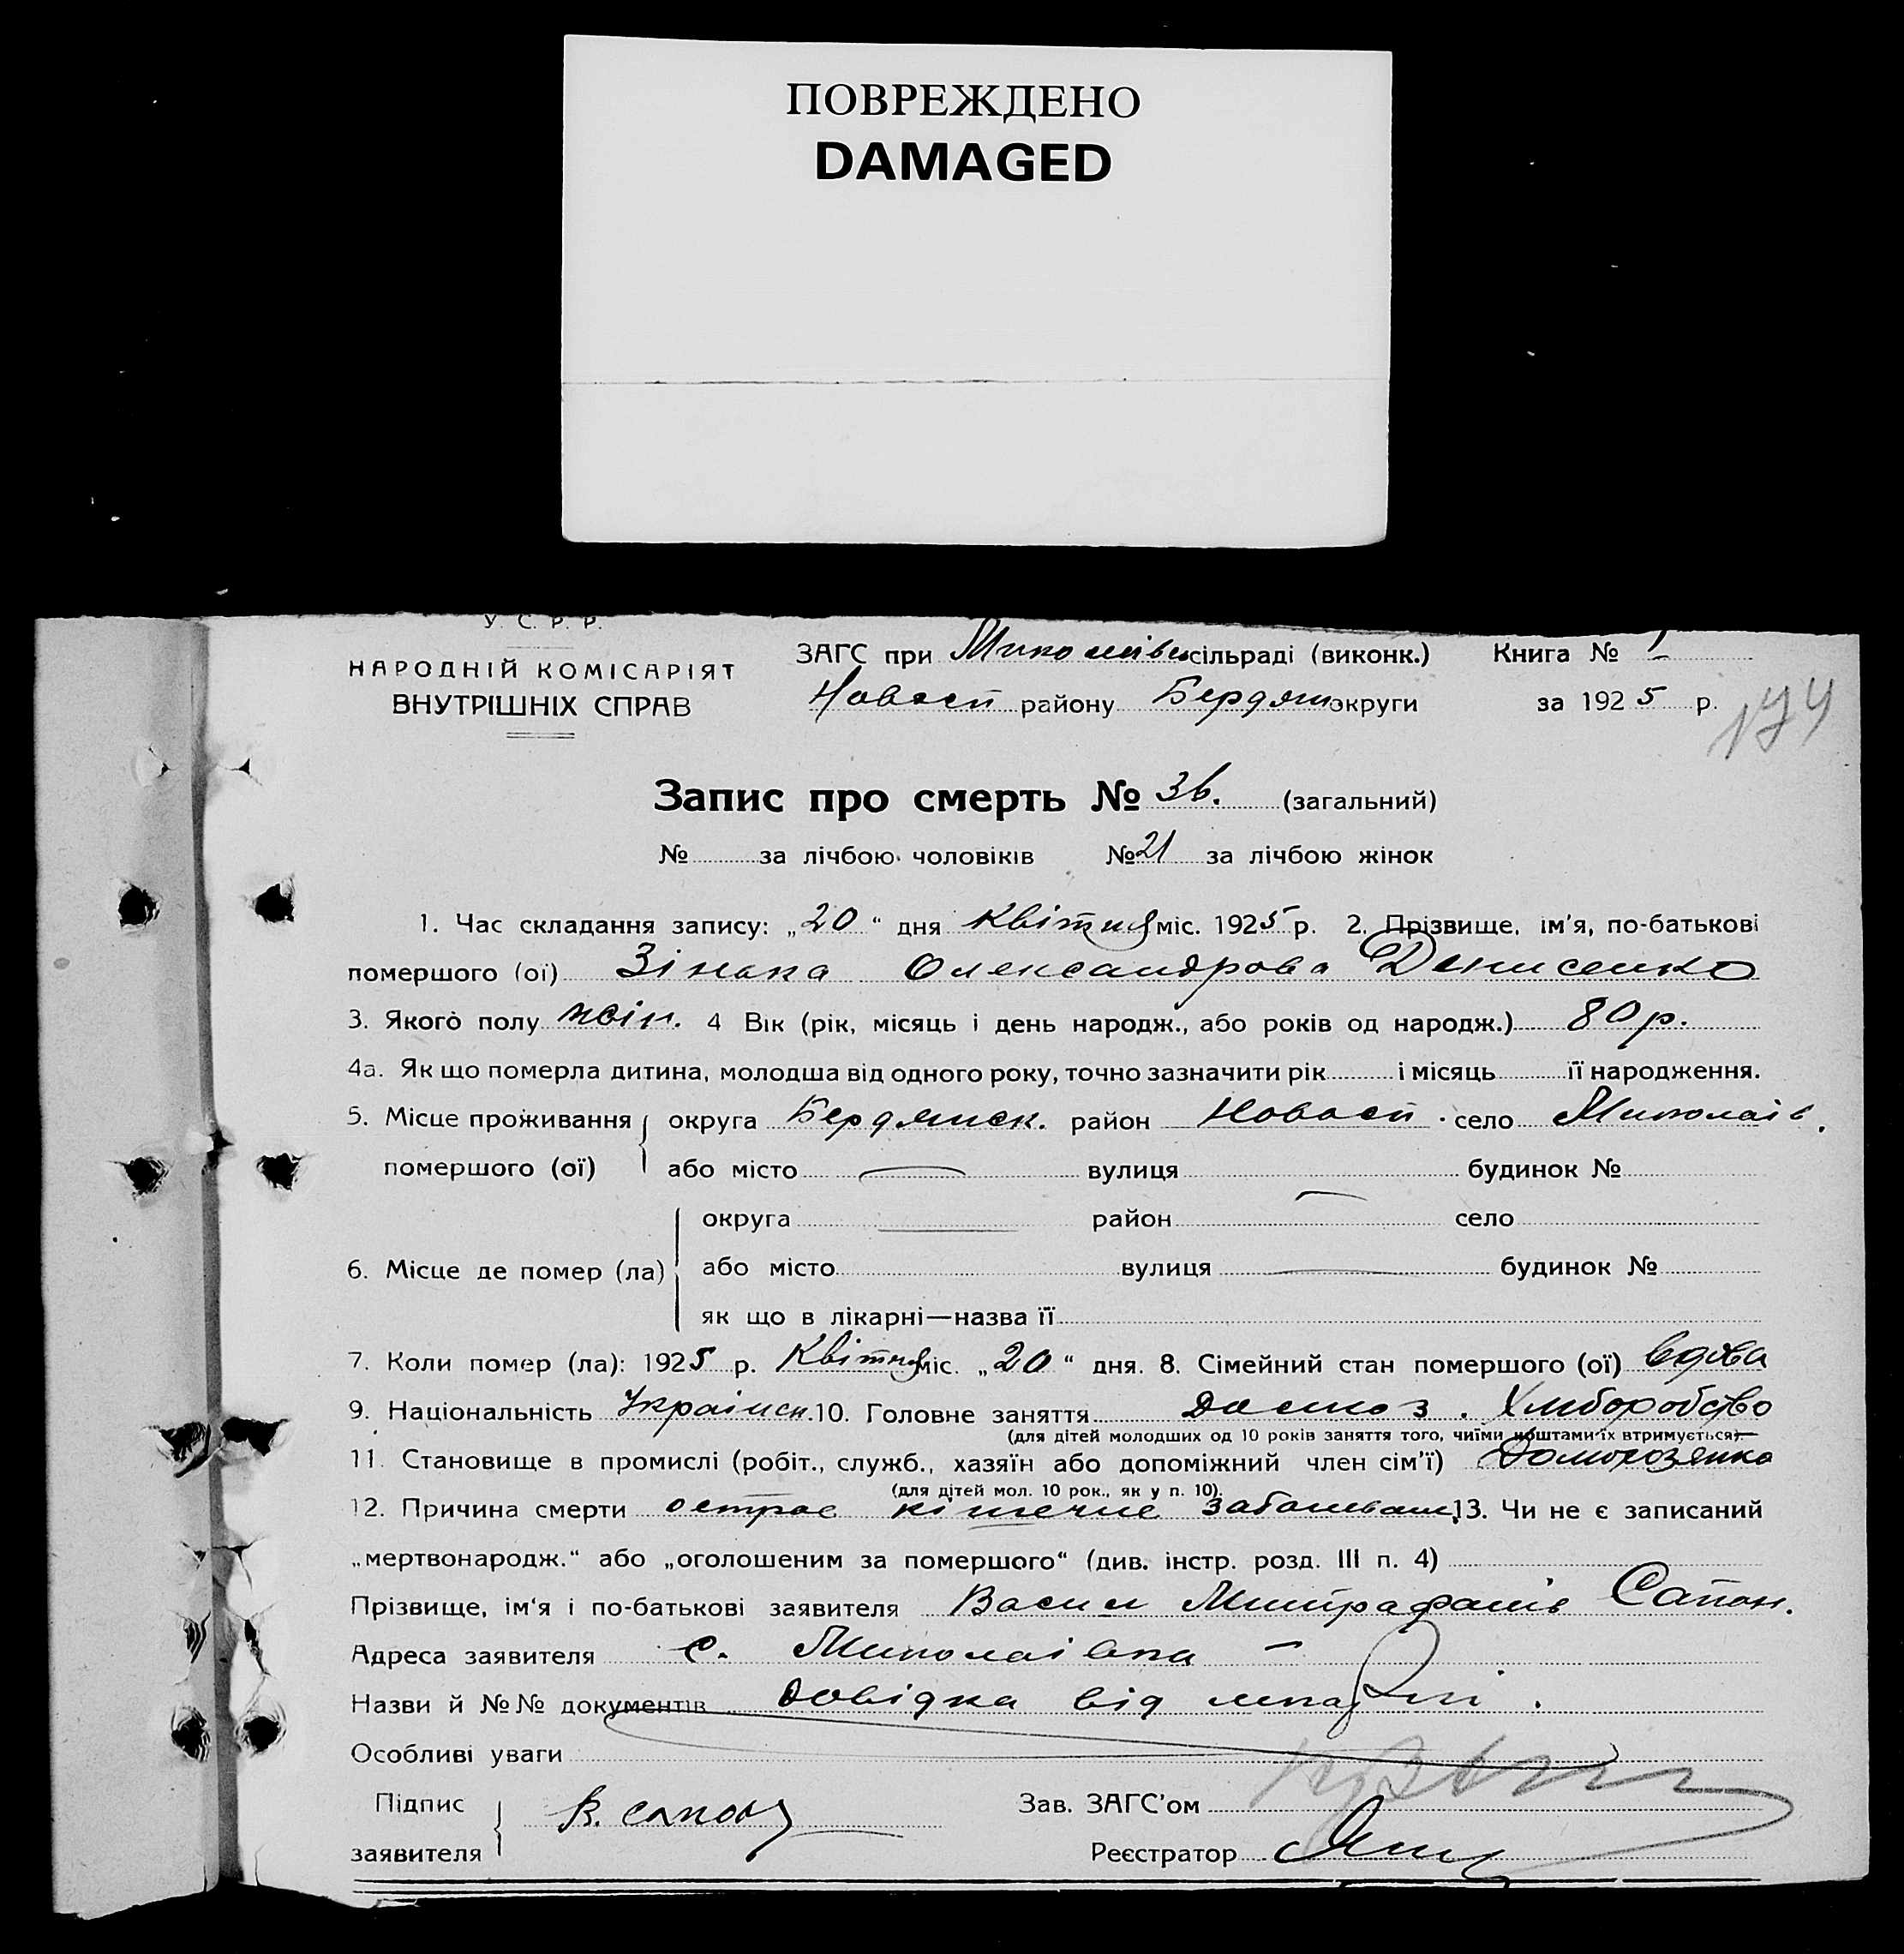 ПОВРЕЖДЕНО
DAMAGED
У. С. Р. Р.
НАРОДНІЙ КОМІСАРІЯТ
ВНУТРІШНІХ СПРАВ
ЗАГС при Миколаївсь сільраді (виконк.) Книга № 1
Новосп району Бердян округи за 1925 р.
174
Запис про смерть № 36. (загальний)
№ за лічбою чоловіків №21 за лічбою жінок
1. Час складання запису: „20“ дня Квітня міс. 1925 р. 2. Прізвище, ім'я, по-батькові
помершого (ої) Зінька Олександрова Денисенко
3. Якого полу жін. 4 Вік (рік, місяць і день народж., або років од народж.) 80 р.
4а. Як що померла дитина, молодша від одного року, точно зазначити рік і місяць її народження.
5. Місце проживання помершого (ої) округа Бердянськ. район Новосп. село Миколаїв.
або місто вулиця будинок №
6. Місце де помер (ла) округа район село
або місто вулиця будинок №
як що в лікарні—назва її
7. Коли помер (ла): 1925 р. Квітня міс. „20“ дня. 8. Сімейний стан помершого (ої) вдова
9. Національність Українськ. 10. Головне заняття Хліборобство
(для дітей молодших од 10 років заняття того, чиїми коштами їх втримується).
11. Становище в промислі (робіт., служб., хазяїн або допоміжний член сім'ї) Домохозяйка
(для дітей мол. 10 рок., як у п. 10).
12. Причина смерти острає кішечне 13. Чи не є записаний
„мертвонародж.“ або „оголошеним за помершого“ (див. інстр. розд. III п. 4)
Прізвище, ім'я і по-батькові заявителя Васил Митрафанів Сапон.
Адреса заявителя с. Миколаївка
Назви й №№ документів Довідка від
Особливі уваги
Підпис заявителя В. сапон
Зав. ЗАГС'ом
Реєстратор